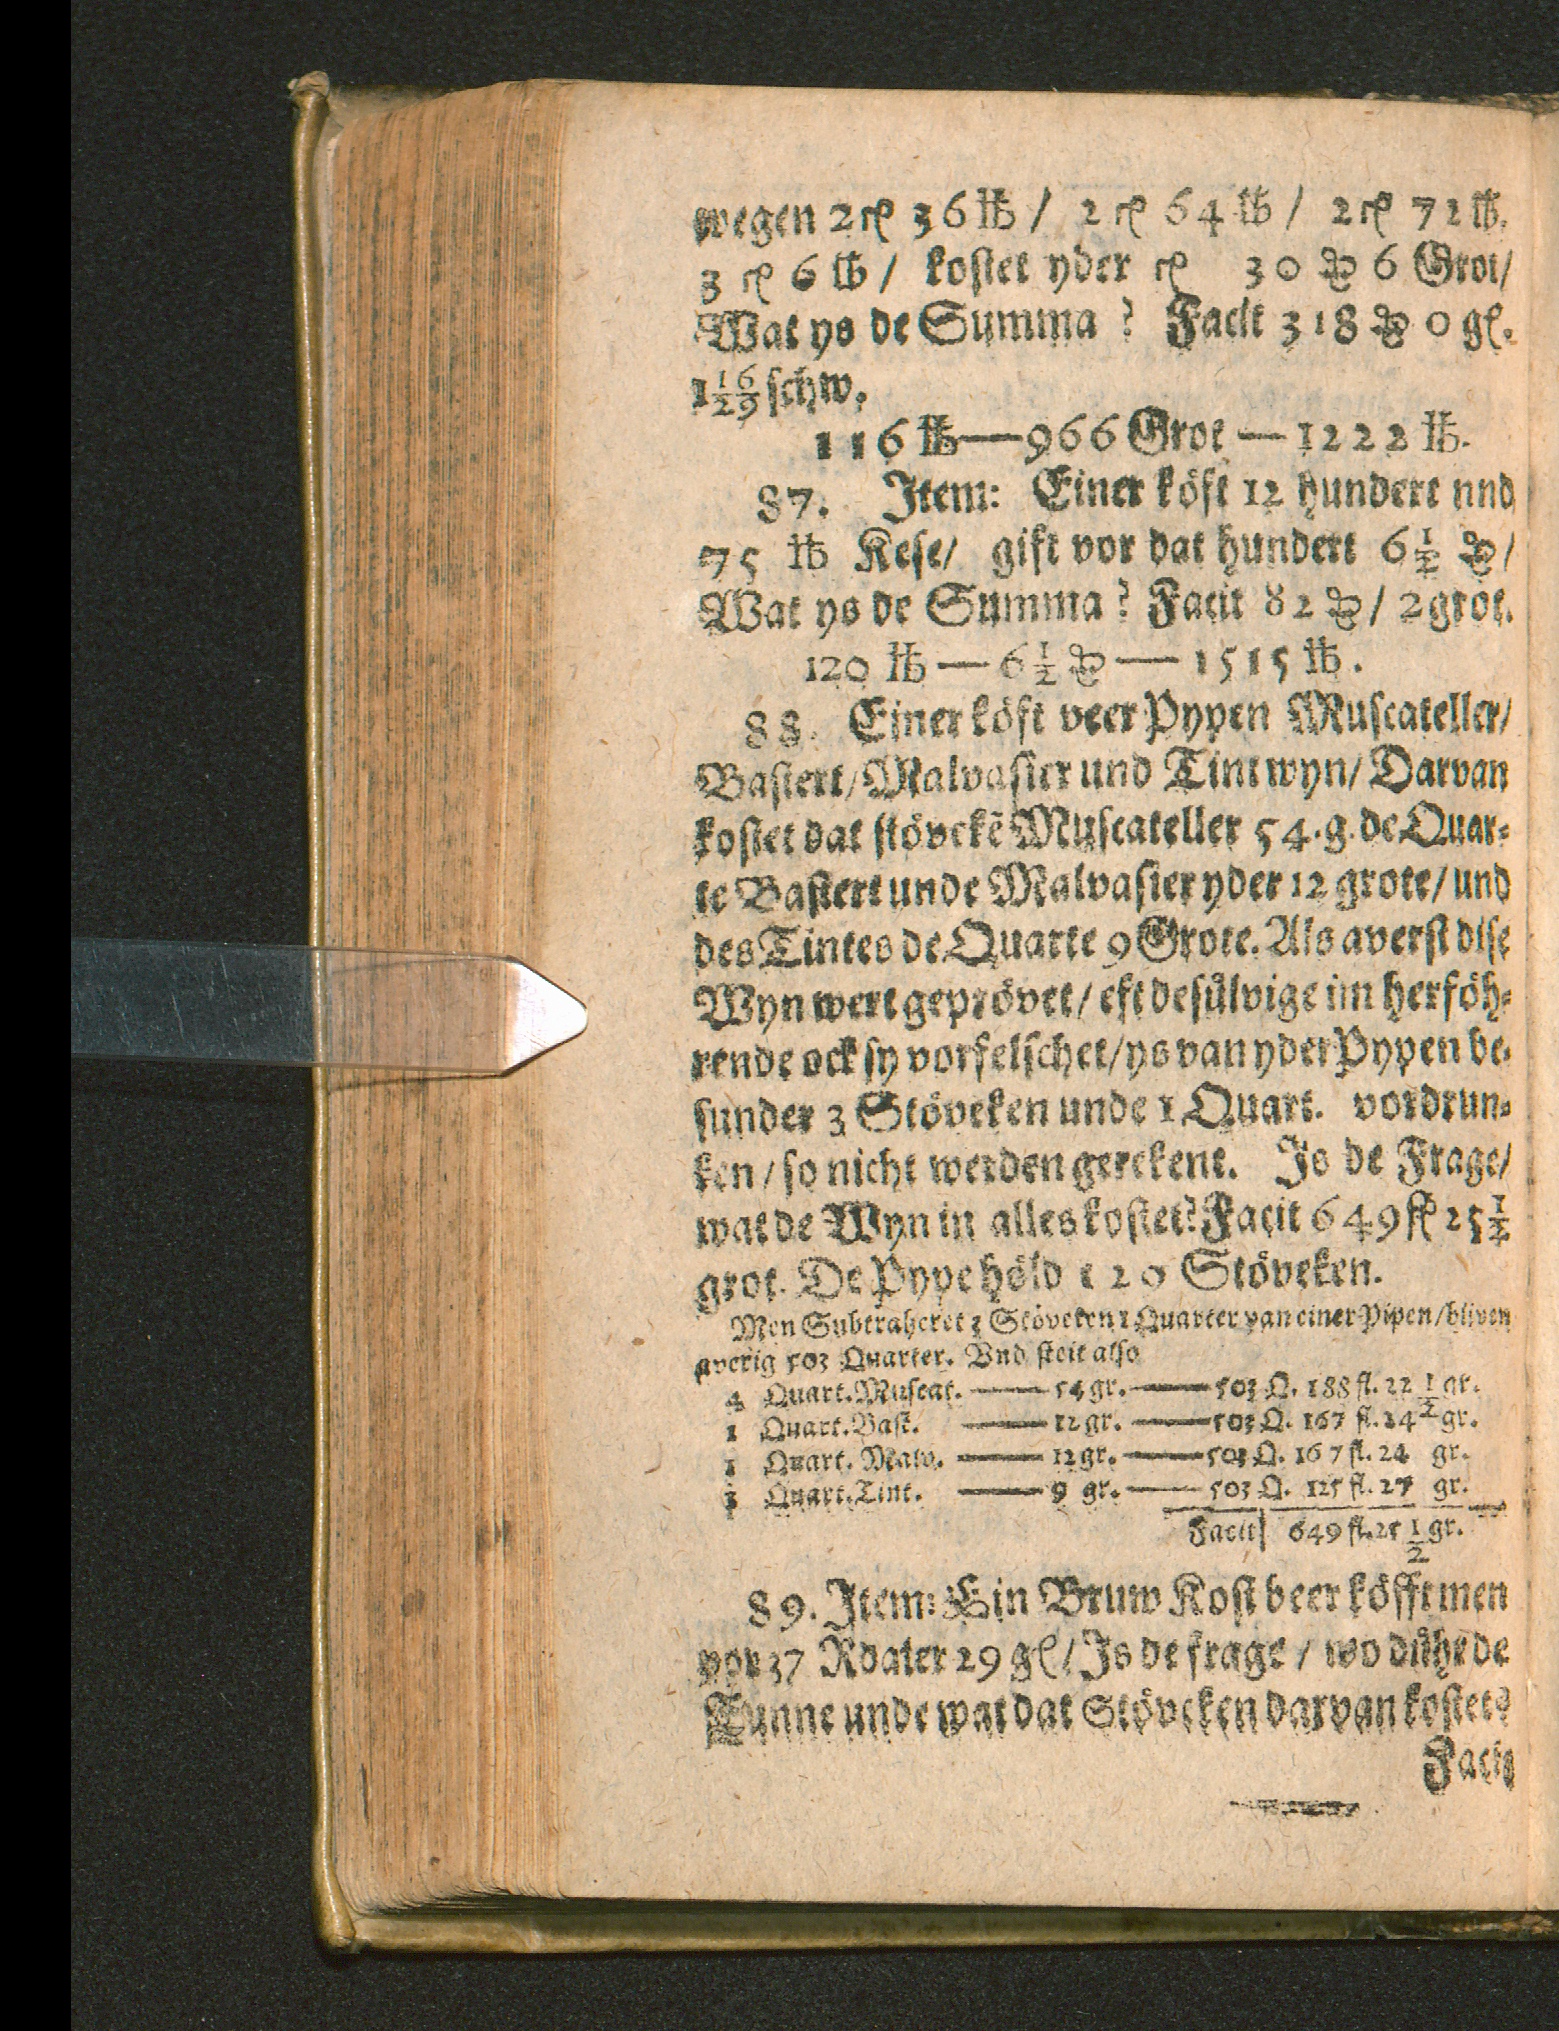 wegen 2 c℔ 36 ℔ / 2 c℔ 64 ℔ / 2 c℔ 72 ℔.
3 c℔ 6 ℔ / kostet yder c℔ 30 ₰ 6 Grot/
Wat ys de Summa ? Facit 318 ₰ 0 gl.
1 1/2 6/9 schw.
116 ℔—966 Grot — 1222 ℔.
87. Item: Einer köft 12 hundert nnd
75 ℔ Kese/ gift vor dat hundert 6 1/2 ₰/
Wat ys de Summa ? Facit 82 ₰ / 2 grot.
120 ℔ — 6 1/2 ₰ — 1515 ℔.
88. Einer köft veer Pypen Muscateller/
Bastert/ Malvasier und Tint wyn/ Darvan
kostet dat stövekẽ Muscateller 54. g. de Quar-
te Bastert unde Malvasier yder 12 grote/ und
des Tintes de Quarte 9 Grote. Als averst dise
Wyn wert geprövet/ eft desülvige im herföh-
rende ock sy vorfelschet/ ys van yder Pypen be-
sunder 3 Stöveken unde 1 Quart. vordrun-
ken / so nicht werden gerekent. Is de Frage/
wat de Wyn in alles kostet? Facit 649 fl 25 1/2
grot. De Pype höld 120 Stöveken.
Men Subtraheret 3 Stöveken 1 Quarter van einer Pipen/ bliven
averig 503 Quarter. Vnd steit also
4 Quart. Muscat. — 54 gr. — 503 Q. 188 fl. 22 1/2 gr.
1 Quart. Bast. — 12 gr. — 503 Q. 167 fl. 24 gr.
1 Quart. Malv. — 12 gr. — 503 Q. 167 fl. 24 gr.
1 Quart. Tint. — 9 gr. — 503 Q. 125 fl. 27 gr.
Facit| 649 fl. 25 1/2 gr.
89. Item: Ein Bruw Kost beer köfft men
vor 37 Rdaler 29 gl / Is de frage / wo dühr de
Tunne unde wat dat Stöveken darvan kostet?
Facit